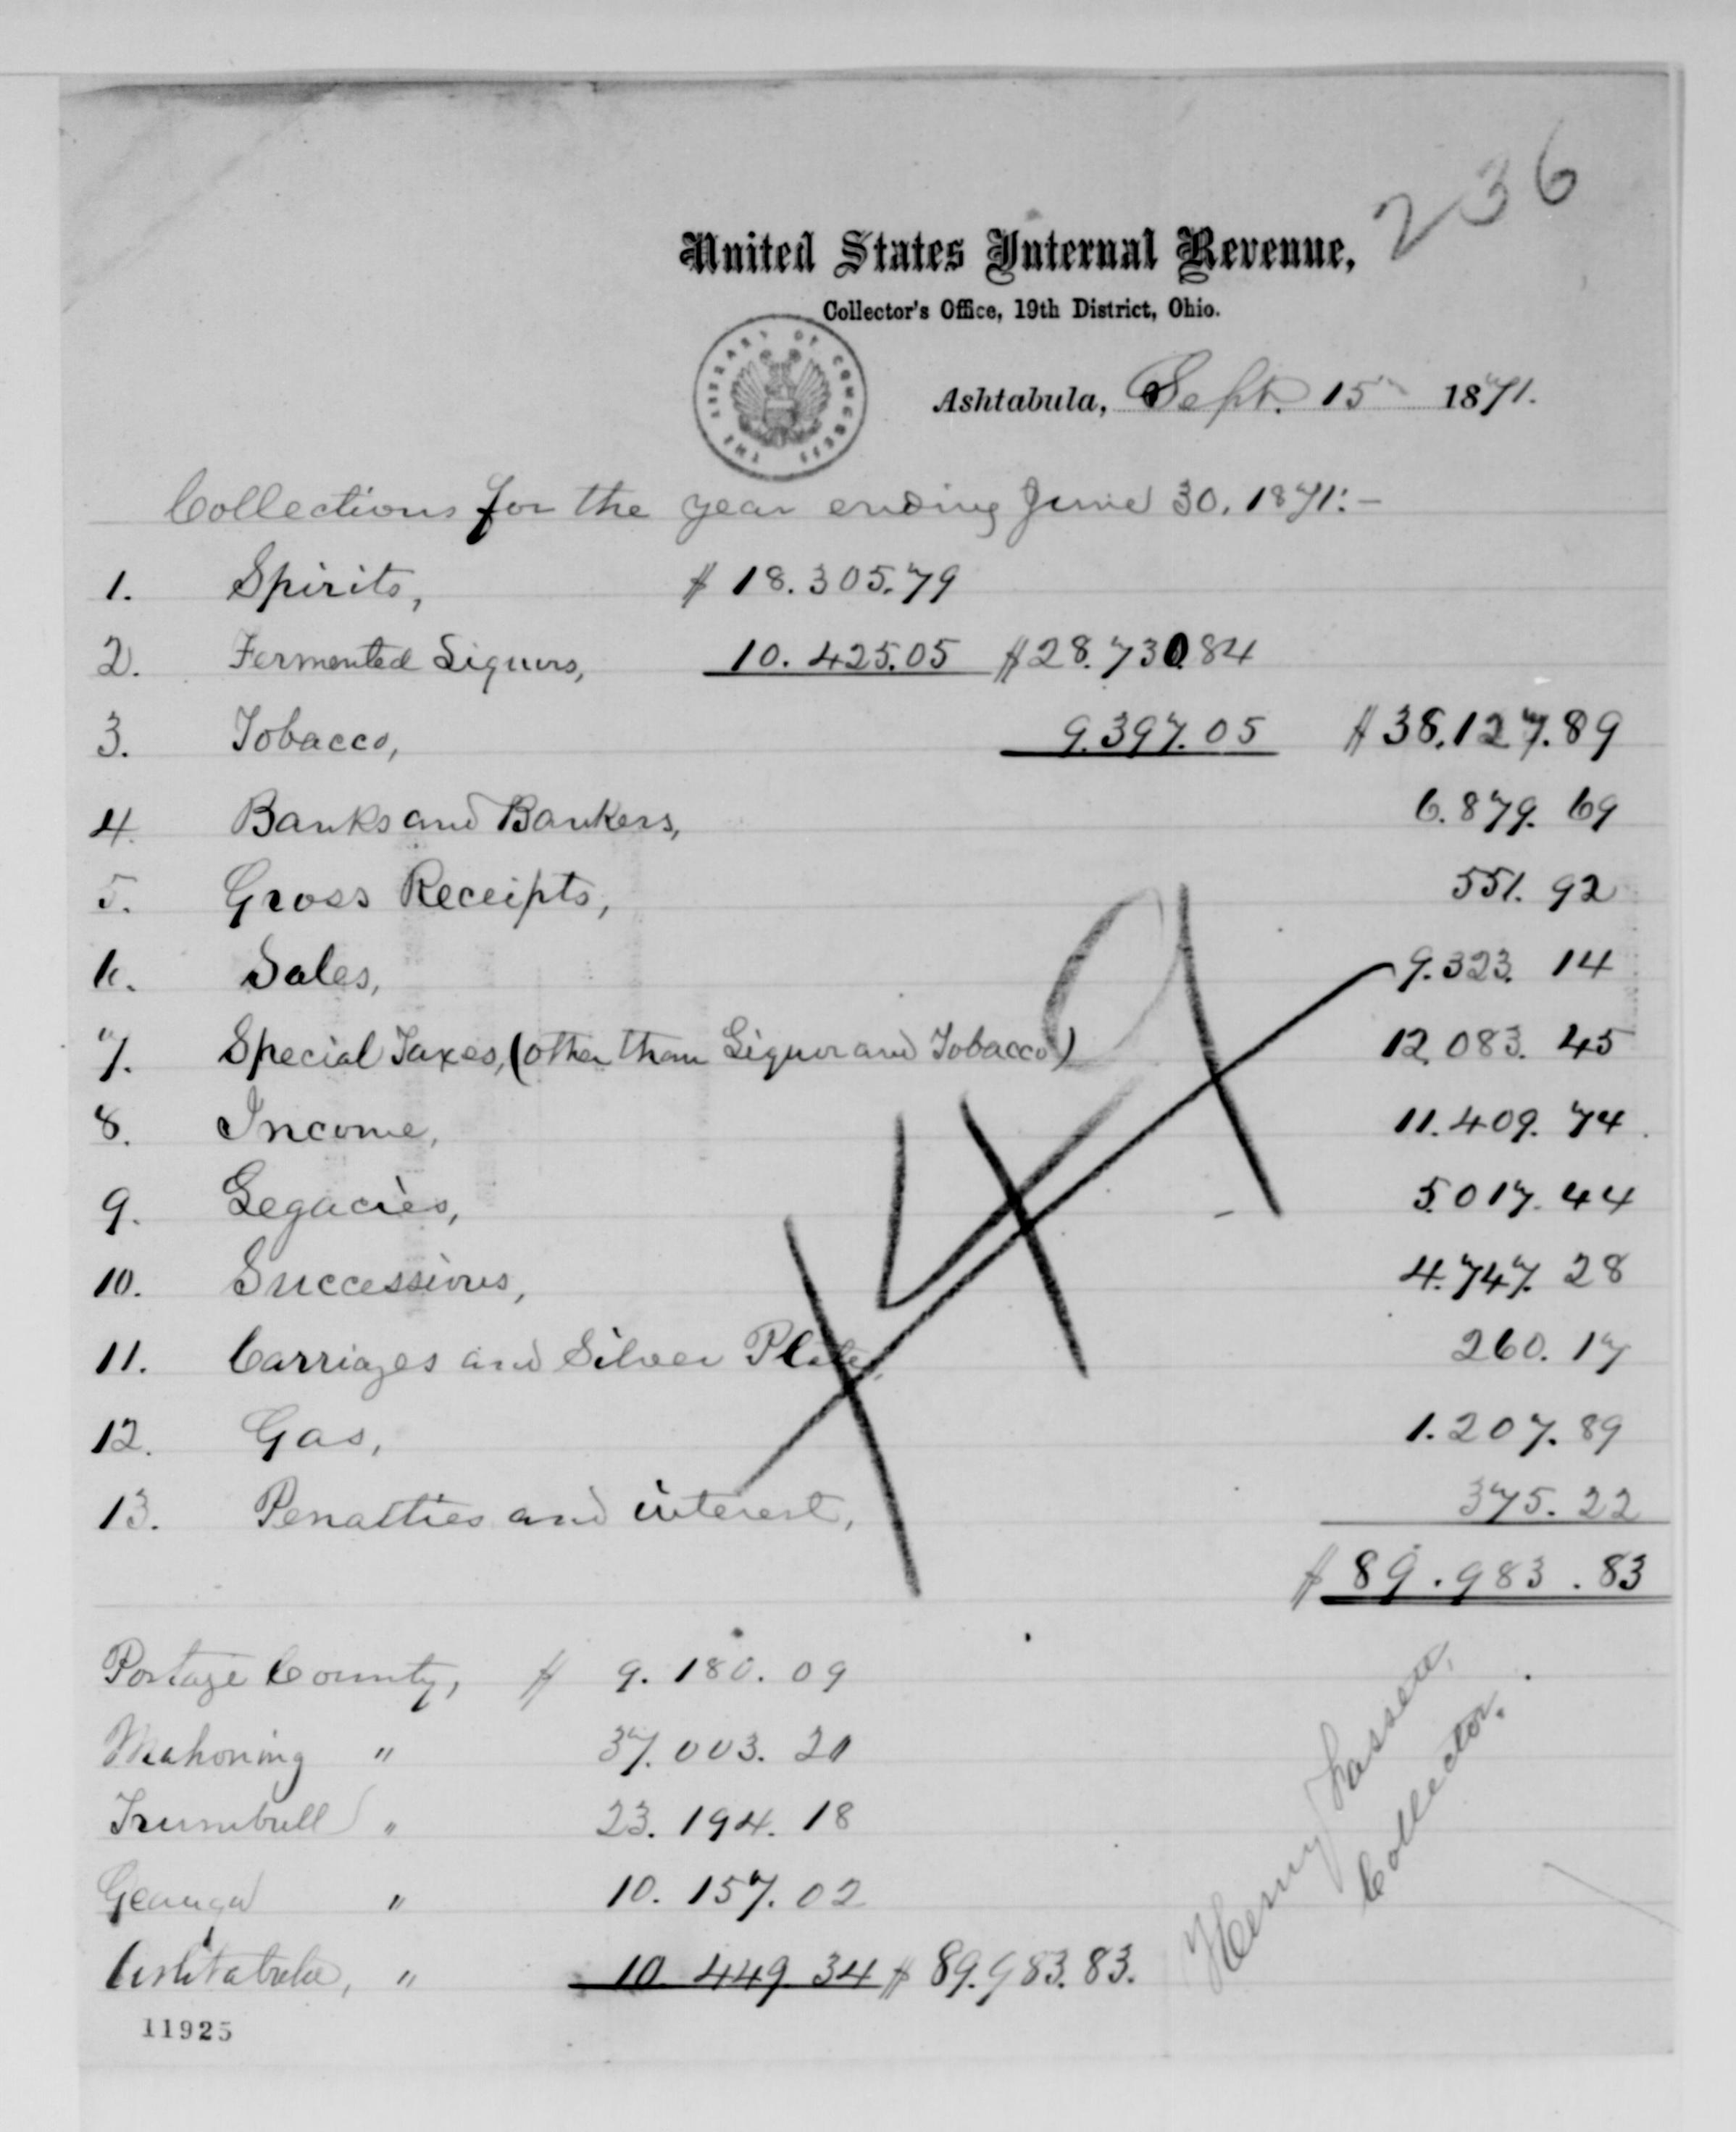 236
United States Internal Revenue,
Collector's Office, 19th District, Ohio.
THE LIBRARY OF CONGRESS
Ashtabula, Sept. 15 1871.
Collections for the year ending June 30, 1871:-
1. Spirits, $ 18.305.79
2. Fermented Liquors, 10.425.05 $28.730.84
3. Tobacco, 9.397.05 $38.127.89
4. Banks and Bankers, 6.879.69
5. Gross Receipts, 551.92
6. Sales, 9.323.14
7. Special Taxes, (other than Liquor and Tobacco) 12.083.45
8. Income, 11.409.74
9. Legacies, 5.017.44
10. Successions, 4.747.28
11. Carriages and Silver Plate, 260.17
12. Gas, 1.207.89
13. Penalties and interest, 375.22
$ 89.983.83
Portage County, $ 9.180.09
Mahoning " 37.003.20
Trumbull " 23.194.18
Geauga " 10.157.02
Ashtabula, " 10.449.34 $ 89.983.83.
Henry Fassett,
Collector.
11925